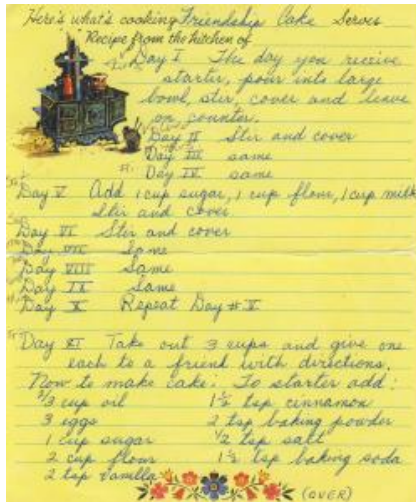 Here's what's cooking Friendship Cake Serves
Recipe from the kitchen of
Day I The day you receive
starter, pour into large
bowl, stir, cover and leave
on counter.
Day II Stir and cover
Day III same
Day IV same
Day V Add 1 cup sugar, 1 cup flour, 1 cup milk
Stir and cover
Day VI Stir and cover
Day VII Same
Day VIII Same
Day IX Same
Day X Repeat Day # V
Day XI Take out 3 cups and give one
each to a friend with directions.
Now to make cake: To starter add:
2/3 cup oil 1 1/2 tsp cinnamon
3 eggs 2 tsp baking powder
1 cup sugar 1/2 tsp salt
2 cup flour 1 1/2 tsp baking soda
2 tsp vanilla
(OVER)